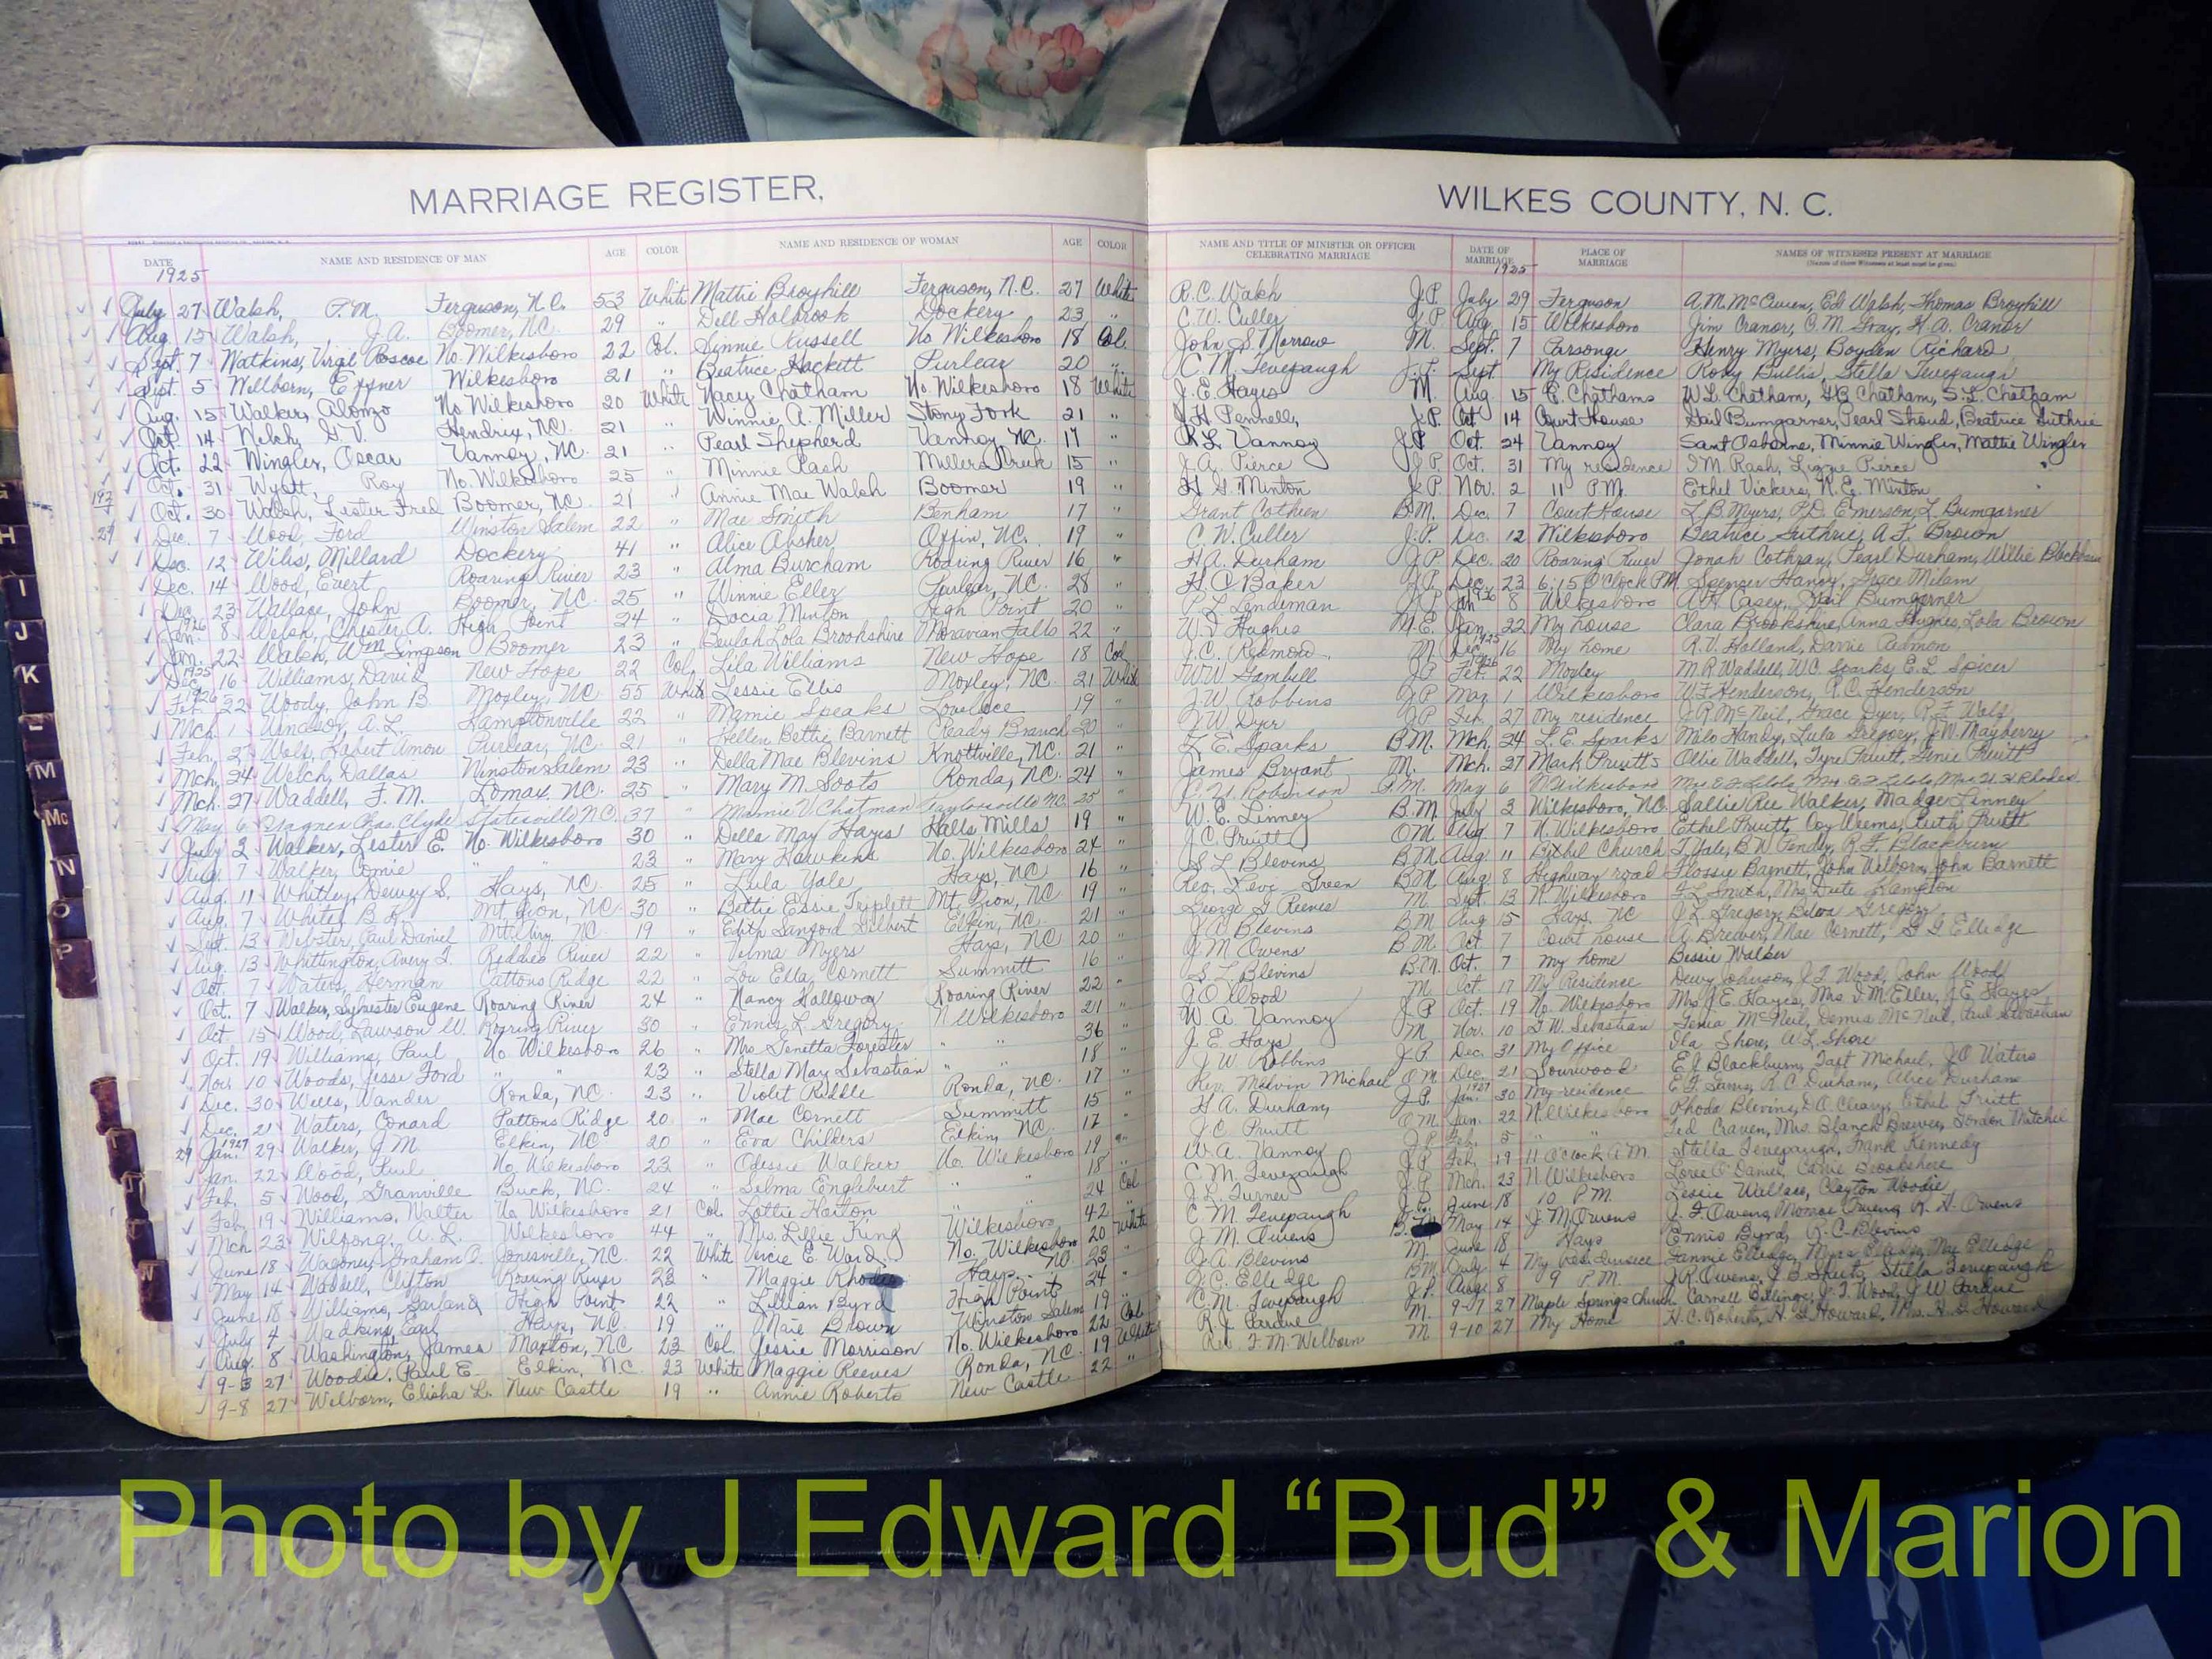 MARRIAGE REGISTER,
DATE NAME AND RESIDENCE OF MAN AGE COLOR NAME AND RESIDENCE OF WOMAN AGE COLOR
1925
July 27 Walsh, P.M. Ferguson, N.C. 53 White Mattie Broyhill Ferguson, N.C. 27 White
Aug. 15 Walsh, J.A. Boomer, N.C. 29 " Dell Holbrook Dockery 23 "
Sept. 7 Watkins, Virgil Roscoe No. Wilkesboro 22 Col. Sinnie Russell No Wilkesboro 18 Col.
Sept. 5 Wellborn, Effner Wilkesboro 21 " Beatrice Hackett Purlear 20 "
Aug. 15 Walker, Alonzo No. Wilkesboro 20 White Nacy Chatham No. Wilkesboro 18 White
Oct 14 Welch, G.V. Hendrix, N.C. 21 " Winnie A. Miller Stony Fork 21 "
Oct. 22 Wingler, Oscar Vannoy, N.C. 21 " Pearl Shepherd Vannoy, N.C. 17 "
Oct. 31 Wyatt, Roy No. Wilkesboro 25 " Minnie Rash Millers Creek 15 "
Oct. 30 Walsh, Lester Fred Boomer, N.C. 21 " Annie Mae Walsh Boomer 19 "
Dec. 7 Wood, Ford Winston Salem 22 " Mae Smith Benham 17 "
Dec. 12 Wiles, Millard Dockery 41 " Alice Absher Offin, N.C. 19 "
Dec. 14 Wood, Evert Roaring River 23 " Alma Burcham Roaring River 16 "
Dec. 23 Wallace, John Boomer, N.C. 25 " Winnie Eller Purlear, N.C. 28 "
1926
Jan. 8 Welsh, Chester A. High Point 24 " Dacia Minton High Point 20 "
Jan. 22 Walsh, Wm Simpson Boomer 23 " Beulah Lola Brookshire Moravian Falls 22 "
1925
Dec. 16 Williams, David New Hope 22 Col. Lila Williams New Hope 18 Col
1926
Feb. 22 Woody, John B. Moxley, N.C. 55 White Lessie Ellis Moxley, N.C. 21 White
Mch. 1 Windsor, A.L. Hamptonville 22 " Mamie Speaks Lovelace 19 "
Feb. 27 Wolf, Robert Amon Purlear, N.C. 21 " Hellen Bettie Barnett Ready Branch 20 "
Mch. 24 Welch, Dallas Winston Salem 23 " Della Mae Blevins Knottville, N.C. 21 "
Mch. 27 Waddell, F.M. Lomax, N.C. 25 " Mary M. Soots Ronda, N.C. 24 "
May 6 Wagner Chas. Clyde Statesville N.C. 37 " Mamie V. Chatman Taylorsville N.C. 25 "
July 2 Walker, Lester E. No. Wilkesboro 30 " Della May Hayes Halls Mills 19 "
Aug. 7 Walker, Comie " " 23 " Mary Hawkins No. Wilkesboro 24 "
Aug. 11 Whitley, Dewey S. Hays, N.C. 25 " Lula Yale Hays, N.C. 16 "
Aug. 7 White, B.R. Mt. Zion, N.C. 30 " Bettie Essie Triplett Mt. Zion, N.C. 19 "
Sept. 13 Webster, Paul Daniel Mt. Airy, N.C. 19 " Edith Sanford Gilbert Elkin, N.C. 21 "
Aug. 13 Whittington, Avery T. Reddies River 22 " Velma Myers Hays, N.C. 20 "
Oct. 7 Waters, Herman Pattons Ridge 22 " Lou Ella Cornett Summitt 16 "
Oct. 7 Walker, Sylvester Eugene Roaring River 24 " Nancy Holloway Roaring River 22 "
Oct. 15 Wood, Lawson W. Roaring River 30 " Ennis L. Gregory N Wilkesboro 21 "
Oct. 19 Williams, Paul No Wilkesboro 26 " Mrs Genetta Forester " " 36 "
Nov. 10 Woods, Jesse Ford " " 23 " Stella May Sebastian " " 18 "
Dec. 30 Wells, Wander Ronda, N.C. 23 " Violet Riddle Ronda, N.C. 17 "
Dec. 21 Waters, Conard Pattons Ridge 20 " Mae Cornett Summitt 15 "
1927
Jan. 29 Walker, J.M. Elkin, N.C. 20 " Eva Childers Elkin, N.C. 17 "
Jan. 22 Wood, Paul No. Wilkesboro 23 " Odessie Walker No. Wilkesboro 19 "
Feb. 5 Wood, Granville Buck, N.C. 24 " Selma Englebert " " 18 "
Feb. 19 Williams, Walter No Wilkesboro 21 Col. Lottie Horton " " 24 Col
Mch. 23 Wilsong, A.L. Wilkesboro 44 " Mrs. Lillie King Wilkesboro 42 "
June 18 Wagoner, Graham O. Jonesville, N.C. 22 White Vircie E. Ward No. Wilkesboro 20 White
May 14 Waddell, Clifton Roaring River 23 " Maggie Rhodes Hays, N.C. 23 "
June 18 Williams, Garland High Point 22 " Lillian Byrd High Point 24 "
July 4 Wadkins, Earl Hays, N.C. 19 " Marie Brown Winston Salem 19 "
Aug. 8 Washington, James Maxton, N.C. 23 Col. Jessie Morrison No. Wilkesboro 22 Col.
9-3 27 Woodie, Paul E. Elkin, N.C. 23 White Maggie Reeves Ronda, N.C. 19 White
9-8 27 Welborn, Elisha L. New Castle 19 " Annie Roberts New Castle 22 "
WILKES COUNTY, N. C.
NAME AND TITLE OF MINISTER OR OFFICER CELEBRATING MARRIAGE DATE OF MARRIAGE PLACE OF MARRIAGE NAMES OF WITNESSES PRESENT AT MARRIAGE
1925
R.C. Walsh J.P. July 29 Ferguson A.M. McEwen, Ed Walsh, Thomas Broyhill
C.W. Culler J.P. Aug. 15 Wilkesboro Jim Cranor, C.M. Gray, H.A. Cranor
John S. Morrow M. Sept. 7 Parsonge Henry Myers, Boyden Richard
C.M. Tevepaugh J.P. Sept My Residence Roby Bullis, Stella Tevepaugh
J.E. Hayes M. Aug. 15 E. Chathams W.L. Chatham, G.B. Chatham, S.L. Chatham
J.H. Pennell, J.P. Oct 14 Court House Gail Bumgarner, Pearl Shroud, Beatrice Guthrie
R.L. Vannoy J.P. Oct. 24 Vannoy Sant Osborne, Minnie Wingler, Mattie Wingler
J.A. Pierce J.P. Oct. 31 My residence I.M. Rash, Lizzie Pierce
H.G. Minton J.P. Nov. 2 11 P.M. Ethel Vickers, N.E. Minton
Grant Cothren B.M. Dec. 7 Court House L.B. Myers, P.D. Emerson, L. Bumgarner
C.W. Culler J.P. Dec. 12 Wilkesboro Beatrice Guthrie, A.F. Brown
H.A. Durham J.P. Dec. 20 Roaring River Jonah Cothran, Pearl Durham, Willie Blackburn
H.C. Baker J.P. Dec. 23 6:15 O'clock P.M. Spencer Handy, Grace Milam
1926
P.L. Lendeman J.P. Jan 8 Wilkesboro A.H. Casey, Gail Bumgarner
W.V. Hughes M.E. Jan. 22 My house Clara Brookshire, Anna Hughes, Lola Brown
1925
J.C. Redmond M Dec. 16 My home R.V. Holland, Davie Redmon
1926
W.W. Gambill J.P. Feb. 22 Moxley M.R. Waddell, W.C. Sparks, E.L. Spicer
J.W. Robbins J.P. Mar. 1 Wilkesboro W.F. Henderson, R.C. Henderson
J.W. Dyer J.P. Feb. 27 My residence J.R. McNeil, Grace Dyer, R.F. Wolf
L.E. Sparks B.M. Mch. 24 L.E. Sparks Milo Handy, Lula Gregory, J.W. Mayberry
James Bryant M. Mch. 27 Mark Pruitts Ollie Waddell, Tyre Pruitt, Genie Pruitt
C.H. Robinson P.M. May 6 N. Wilkesboro
W.E. Linney B.M. July 3 Wilkesboro, N.C. Sallie Rue Walker, Madge Linney
J.C. Pruitt O.M. Aug. 7 N. Wilkesboro Ethel Pruitt, Coy Weems, Ruth Pruitt
S.L. Blevins B.M. Aug 11 Bethel Church T. Yale, B.W. Fender, R.F. Blackburn
Rev. Levi Green B.M. Aug 8 Highway road Flossie Barnett, John Welborn, John Barnett
George G. Reeves M. Sept. 13 N. Wilkesboro F.L. Smith, Mrs. Duete Hampton
J.A. Blevins B.M. Aug 15 Hays, N.C. J.L. Gregory, Gregory
J.M. Owens B.M. Oct 7 Court house A. Brewer, Mae Cornett, G.G. Elledge
S.L. Blevins B.M. Oct. 7 My home Bessie Walker
J.O. Wood M Oct. 17 My Residence Dewy Johnson, J.T. Wood, John Wood
W.A. Vannoy J.P. Oct. 19 No. Wilkesboro Mrs. J.E. Hayes, Mrs. I.M. Eller, J.E. Hayes
J.E. Hays M Nov. 10 T.W. Sebastian Tenia McNeil, Demia McNeil, Paul Sebastian
J.W. Robbins J.P. Dec. 31 My Office Ila Shore, A.L. Shore
Rev. Melvin Michael O.M. Dec. 21 Sourwood E.J. Blackburn, Taft Michael, J.O. Waters
1927
H.A. Durham, J.P. Jan. 30 My residence R.C. Durham, Alice Durham
J.C. Pruitt O.M. Jan. 22 N. Wilkesboro Rhoda Blevins, D.A. Cleary, Ethel Pruitt
W.A. Vannoy J.P. Feb. 5 " " Ted Craven, Mrs. Blanch Brewer, Gordon Mitchel
C.M. Tevepaugh J.P. Feb. 19 11 O'clock A.M. Stella Tevepaugh, Frank Kennedy
J.L. Turner J.P. Mch. 23 N Wilkesboro Loree O'Daniel, Carrie Brookshire
C.M. Tevepaugh J.P. June 18 10 P.M. Jessie Wallace, Clayton Woodie
J.M. Owens May 14 J.M. Owens J.F. Owens, Monroe Owens, R.H. Owens
J.A. Blevins M. June 18 Hays Ennis Byrd, R.C. Blevins
J.C. Elledge B.M. July 4 My residence Fannie Elledge
C.M. Tevepaugh J.P. Aug 8 9 P.M. J.R. Owens, Stella Tevepaugh
R.J. Pardue M. 9-7 27 Maple Springs Church Carnell Billings, J.T. Wood, J.W. Pardue
Rev. F.M. Welborn M 9-10 27 My Home H.C. Roberts, H.G. Howard, Mrs. H.G. Howard
G
H
I
J
K
L
M
Mc
N
O
P
T
W
Photo by J Edward “Bud” & Marion